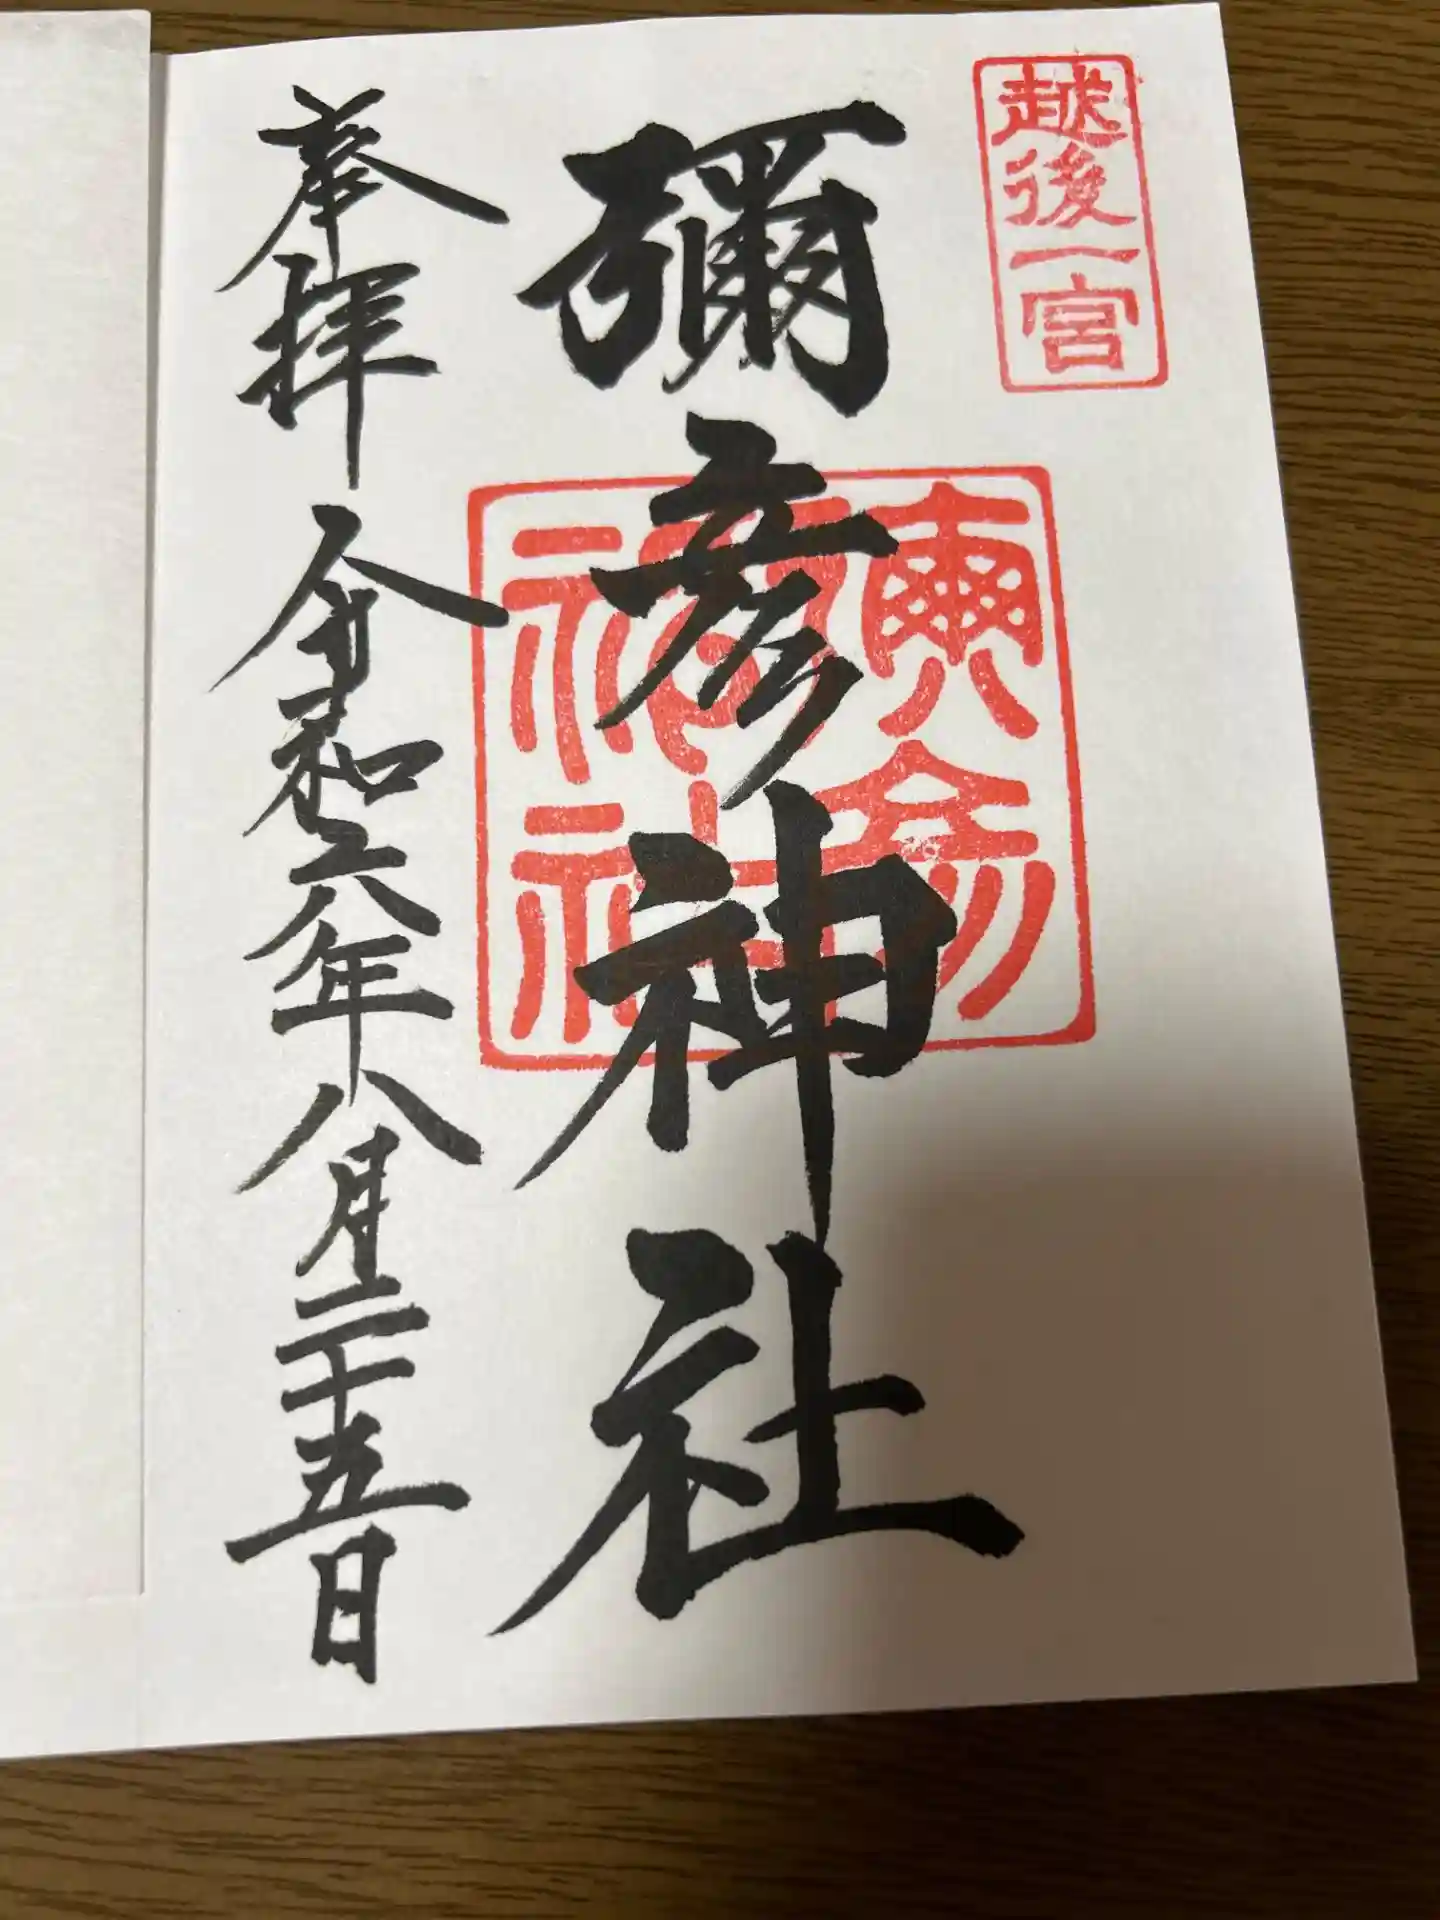 越後一宮
彌彦神社
奉拝
令和六年八月二十五日